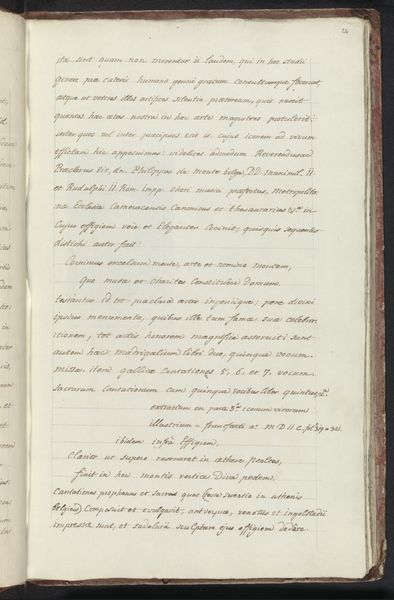 2
ita sint quam non merentur ii laudem, qui in hoc studii
genere præ cateris humano generi gratum consultumque fecerunt
atque ut vetres illos artifices silentio prætereám, quis nescit
quantos hæc ætas nostra in hac arte magistros protulerit:
inter quos vel inter præcipuos erit is, cujus iconem ad vivum
effictam hic apposuimus: videlicet admodum Reverendus ac
Præclarus Vir, dn. Philippus de monte belga, DD. Maximil. II
et Rudolphi II. Rom. impp. chori musici præfectus, metropolita
næ Ecclesiæ Cameracensis Canonicus et thesaurarius in
cujus effigiem vere et Eleganter Cecinit, quisquis sequentis
distichi autor fuit:
Cernimus excelsum mente, arte et nomine montem,
Quo musæ et charites constituere domum
testantur id tot præclara artis ingeniique, pene divini
ipsius monumenta, quibus ille tum famæ suæ celebri-
tionem, tot artis honorem magnifice asseruit: Sunt
autem hæc madrigalium libri duo, quinque vocum.
missæ. item gallicæ cantationes 5, 6, et 7. vocum.
sacrarum Cantationum cum quinque vocibus liber quintus,
extractum ex parte 3.ª iconum virorum
illustrium - francfurti ac M D II C. fol. 39 a 34.
ibidem infra Effigiem,
clarior ut supero resonaret in æthere psaltes,
finit in hoc montis vertice Diva pedem.
Cantiones prophanas et sacras quas (teste sweetio in athenis
belgicis) Composuit et evulgavit, antverpiæ, venetiis et ingolstadii
impressæ sunt, et sadelerii sculptam ejus effigiem dedere.